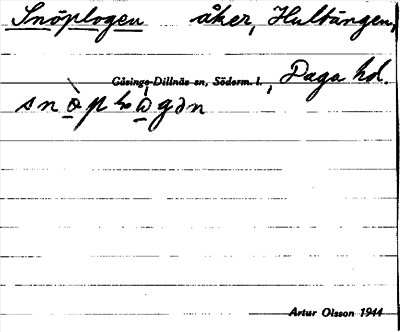 Snöplogen åker, Hultängen,
Gåsinge-Dillnäs sn, Söderm. l., Daga hd.
Artur Olsson 1944